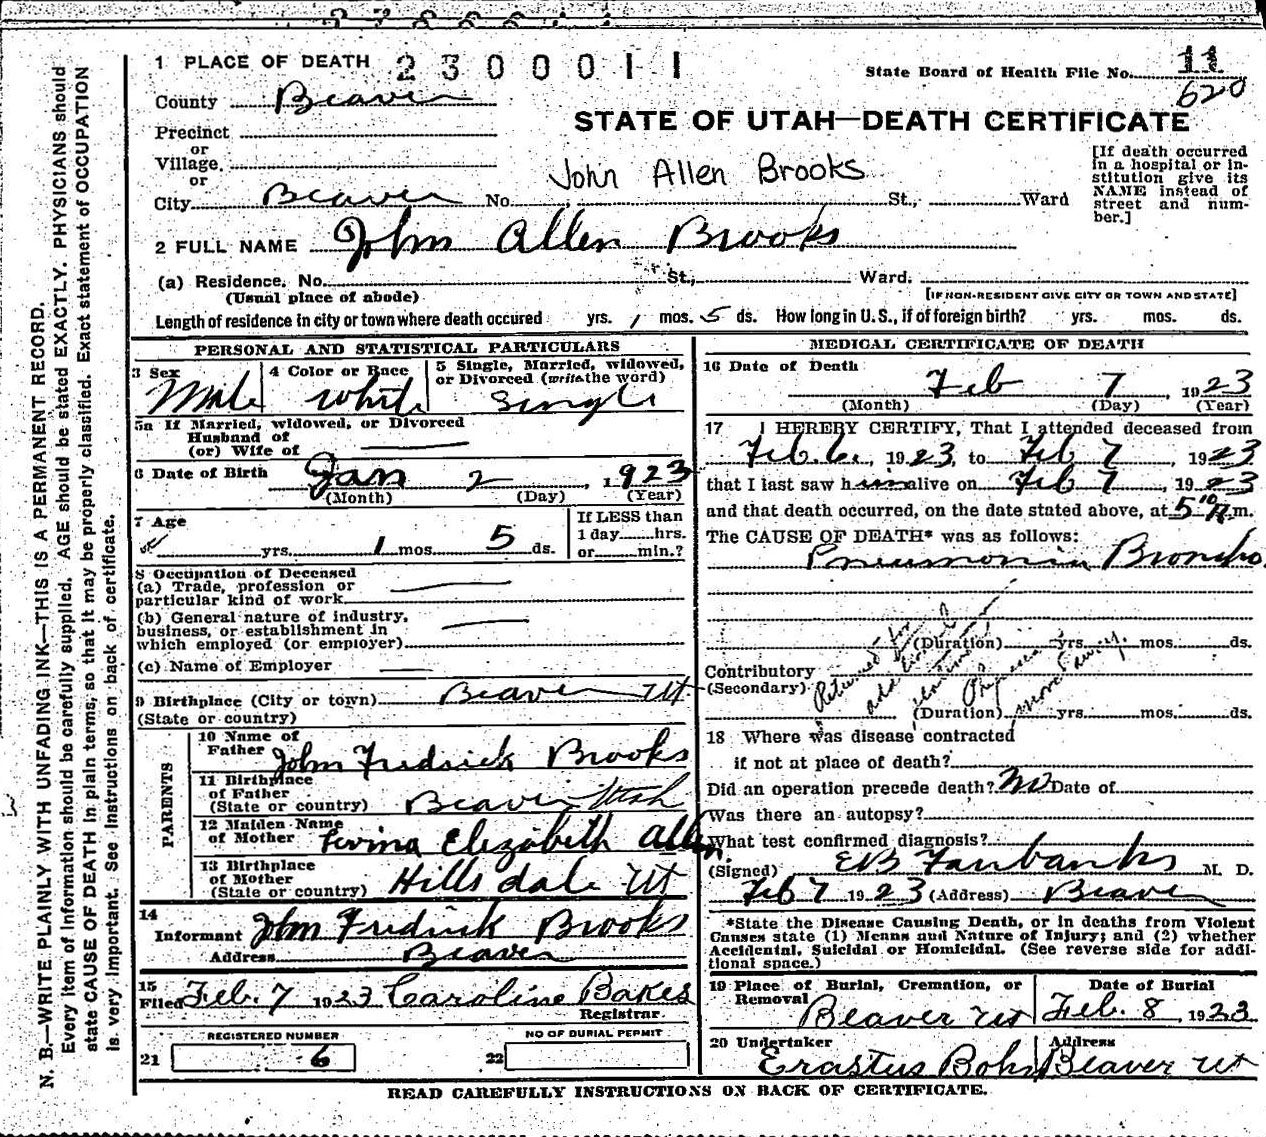 1 PLACE OF DEATH 2 3 0 0 0 1 1
State Board of Health File No. 11
620
County Beaver
STATE OF UTAH—DEATH CERTIFICATE
Precinct
or
Village
or
City Beaver No. St., Ward
John Allen Brooks
[If death occurred in a hospital or institution give its NAME instead of street and number.]
2 FULL NAME John Allen Brooks
(a) Residence. No. St., Ward.
(Usual place of abode) [IF NON-RESIDENT GIVE CITY OR TOWN AND STATE]
Length of residence in city or town where death occured yrs. 1 mos. 5 ds. How long in U. S., if of foreign birth? yrs. mos. ds.
PERSONAL AND STATISTICAL PARTICULARS
3 Sex Male
4 Color or Race White
5 Single, Married, widowed, or Divorced (write the word) Single
5a If Married, widowed, or Divorced
Husband of
(or) Wife of
6 Date of Birth Jan 2, 1923
(Month) (Day) (Year)
7 Age
yrs. 1 mos. 5 ds.
If LESS than
1 day hrs.
or min.?
8 Occupation of Deceased
(a) Trade, profession or
particular kind of work
(b) General nature of industry,
business, or establishment in
which employed (or employer)
(c) Name of Employer
9 Birthplace (City or town) Beaver Ut
(State or country)
PARENTS
10 Name of
Father John Fredrick Brooks
11 Birthplace
of Father
(State or country) Beaver Utah
12 Maiden Name
of Mother Elizabeth Allen
13 Birthplace
of Mother
(State or country) Hillsdale Ut
14
Informant John Fredrick Brooks
Address Beaver
15
Filed Feb. 7 1923 Caroline Bakes
Registrar.
REGISTERED NUMBER
21 6
NO OF BURIAL PERMIT
22
MEDICAL CERTIFICATE OF DEATH
16 Date of Death
Feb 7, 1923
(Month) (Day) (Year)
17 I HEREBY CERTIFY, That I attended deceased from
Feb. 6., 1923, to Feb 7 1923
that I last saw him alive on Feb 7, 1923
and that death occurred, on the date stated above, at 5 10 A.m.
The CAUSE OF DEATH* was as follows:
Pneumonia Broncho
(Duration) yrs. mos. ds.
Contributory
(Secondary)
Returned for additional Physician
(Duration) yrs. mos. ds.
18 Where was disease contracted
if not at place of death?
Did an operation precede death? No Date of
Was there an autopsy?
What test confirmed diagnosis?
(Signed) EB Fairbanks M. D.
Feb 7 1923 (Address) Beaver
*State the Disease Causing Death, or in deaths from Violent
Causes state (1) Menns and Nature of Injury; and (2) whether
Accidental, Suicidal or Homicidal. (See reverse side for addi-
tional space.)
19 Place of Burial, Cremation, or
Removal Beaver Ut
Date of Burial
Feb. 8, 1923
20 Undertaker
Erastus Bohn
Address
Beaver Ut
READ CAREFULLY INSTRUCTIONS ON BACK OF CERTIFICATE.
N. B.—WRITE PLAINLY WITH UNFADING INK—THIS IS A PERMANENT RECORD.
Every item of information should be carefully supplied. AGE should be stated EXACTLY. PHYSICIANS should
state CAUSE OF DEATH in plain terms, so that it may be properly classified. Exact statement of OCCUPATION
is very important. See instructions on back of certificate.